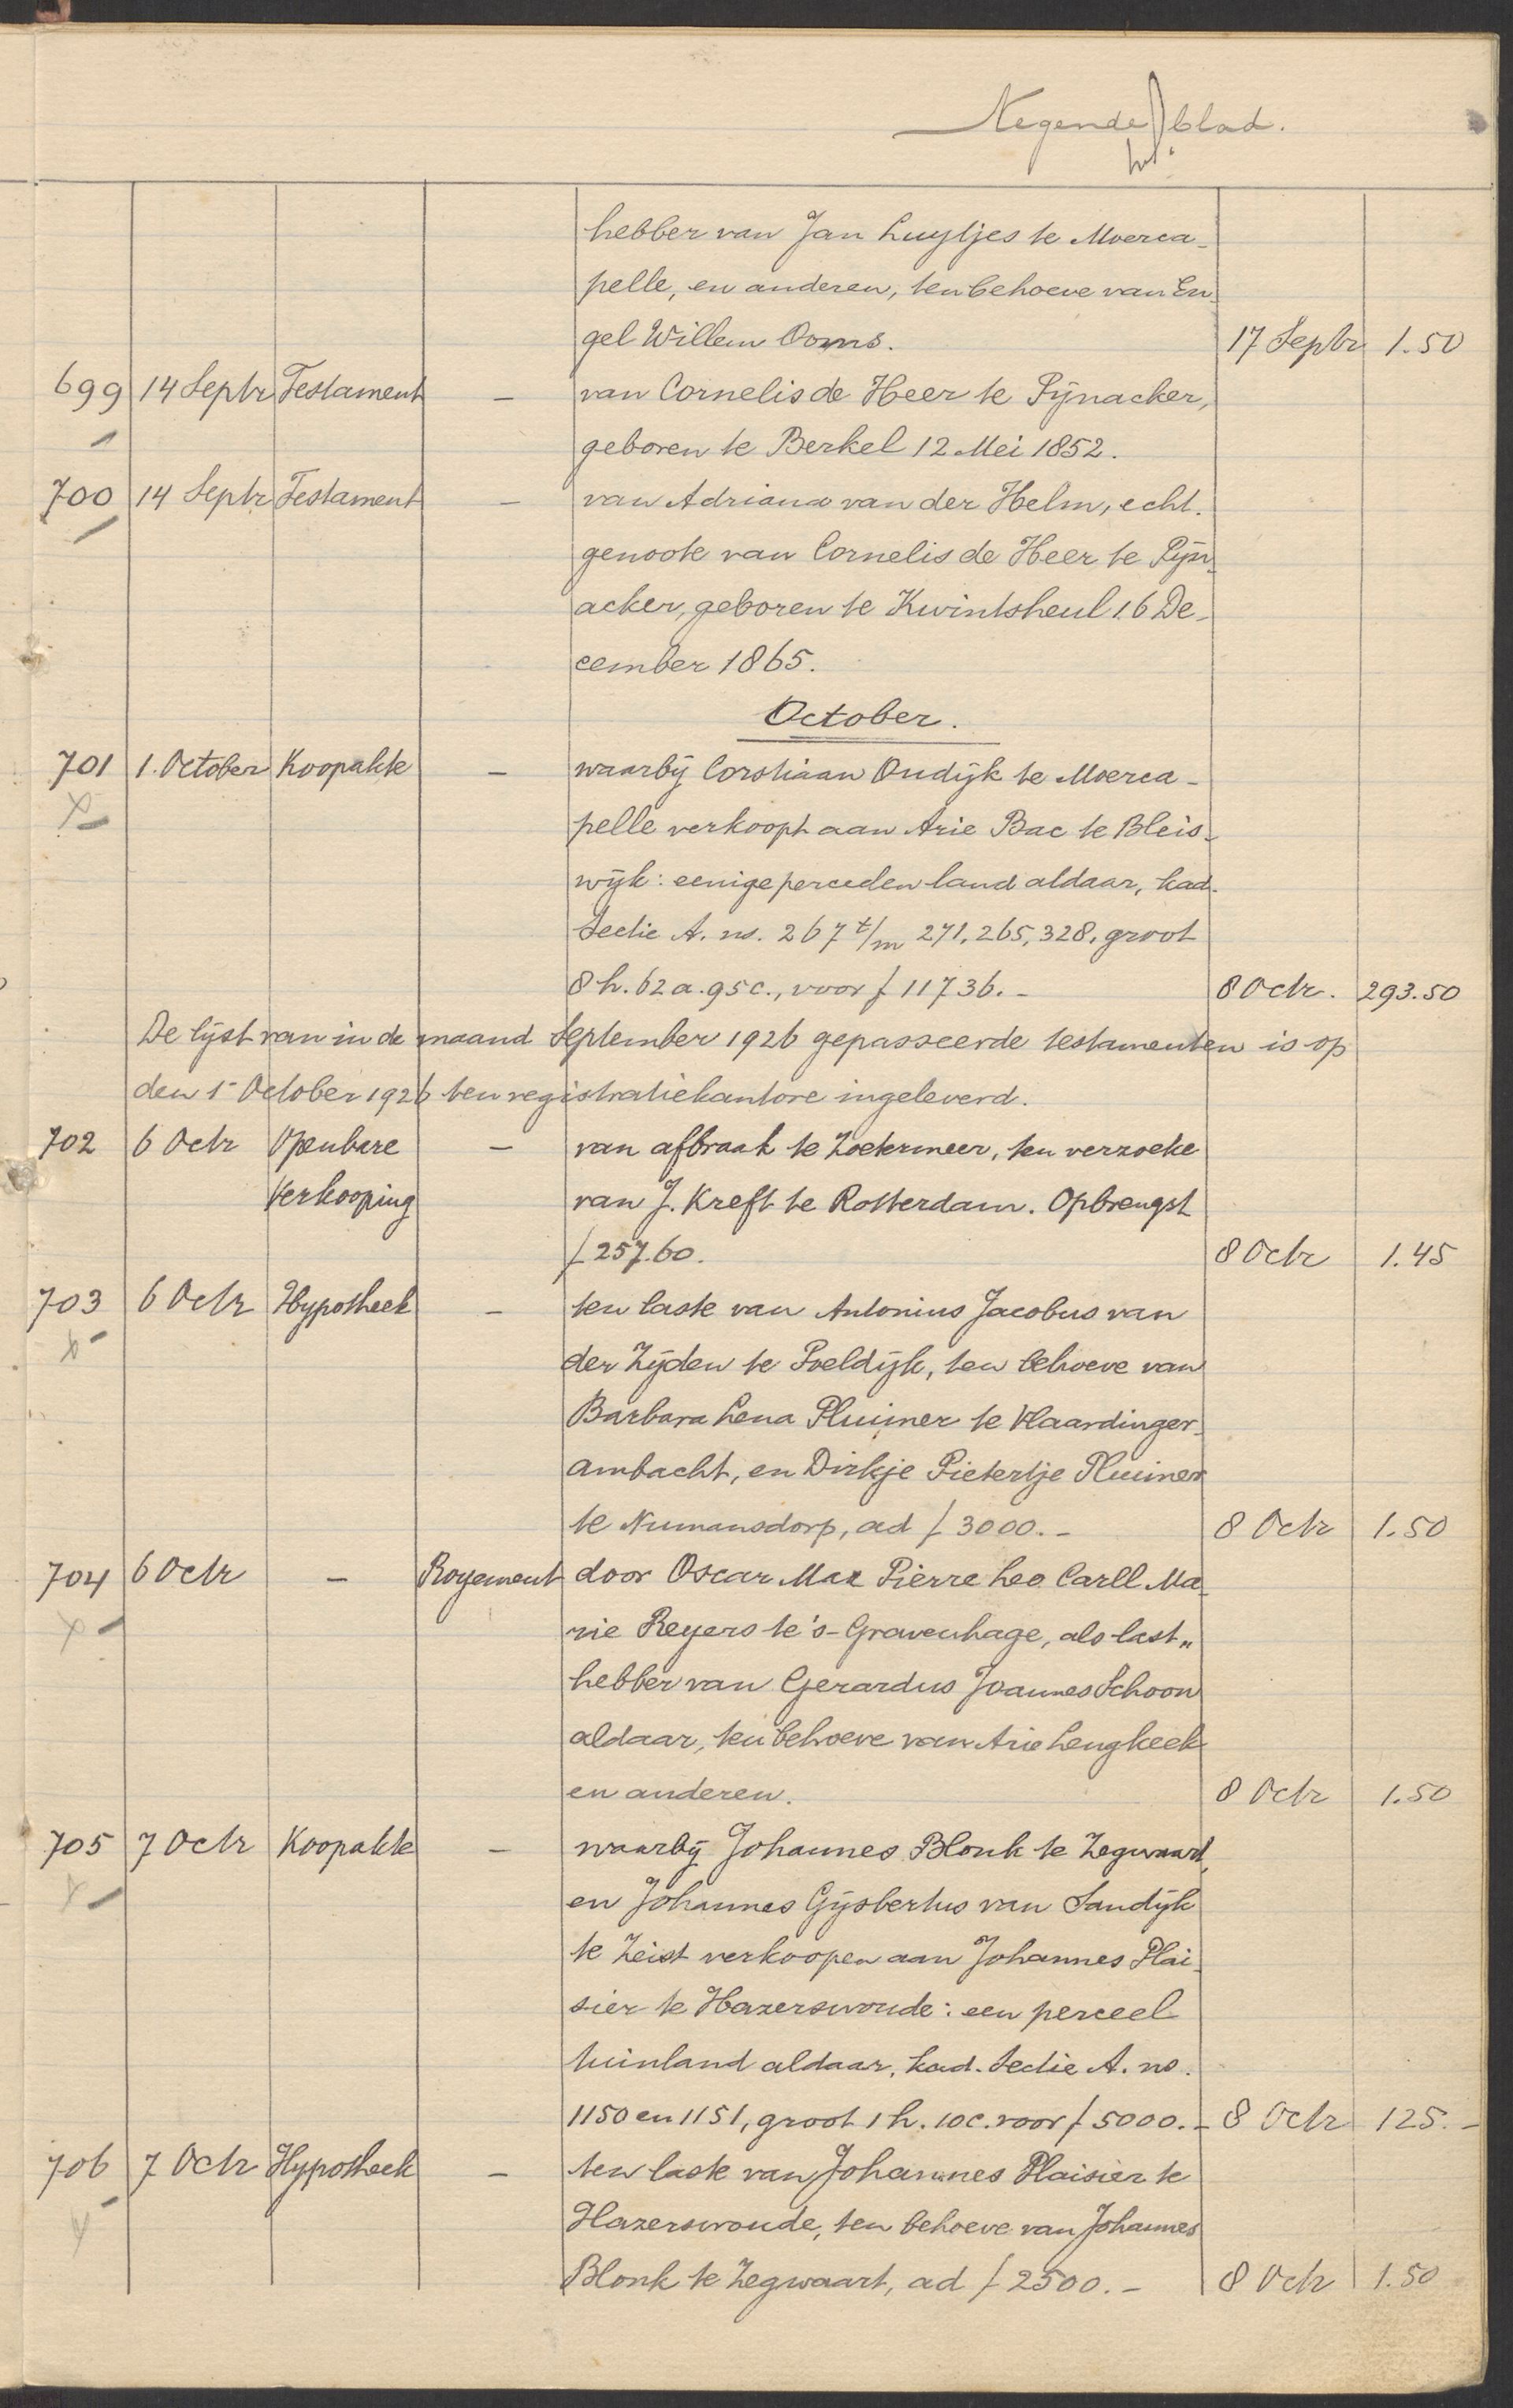 Negende blad.
hebber van Jan Luytjes te Moerca-
pelle, en anderen, ten behoeve van En-
gel Willem Ooms. 17 Septr 1.50
699 14 Septr Testament — van Cornelis de Heer te Pijnacker,
geboren te Berkel 12 Mei 1852.
700 14 Septr Testament — van Adriana van der Helm, echt-
genoote van Cornelis de Heer te Pijn-
acker, geboren te Kwintsheul 16 De-
cember 1865.
October.
701 1 October Koopakte — waarbij Corstiaan Oudijk te Moerca-
pelle verkoopt aan Arie Bac te Bleis-
wijk: eenige perceelen land aldaar, kad.
Sectie A. no. 267 t/m 271, 265, 328, groot
8 h. 62 a. 95 c., voor f 11736.- 8 Octr. 293.50
De lijst van in de maand September 1926 gepasseerde testamenten is op
den 1 October 1926 ten registratiekantore ingeleverd.
702 6 Octr Openbare — van afbraak te Zoetermeer, ten verzoeke
Verkooping van J. Kreft te Rotterdam. Opbrengst
f 257.60. 8 Octr 1.45
703 6 Octr Hypotheek — ten laste van Antonius Jacobus van
der Zijden te Poeldijk, ten behoeve van
Barbara Lena Pluimer te Vlaardinger-
ambacht, en Dirkje Pietertje Pluimer
te Numansdorp, ad f 3000.- 8 Octr 1.50
704 6 Octr — Royement door Oscar Max Pierre Leo Carll Ma-
rie Reyers te 's-Gravenhage, als last„
hebber van Gerardus Joannes Schoon
aldaar, ten behoeve van Arie Lengkeek
en anderen. 8 Octr 1.50
705 7 Octr Koopakte — waarbij Johannes Blonk te Zegwaart,
en Johannes Gijsbertus van Sandijk
te Zeist verkoopen aan Johannes Plai-
sier te Hazerswoude: een perceel
tuinland aldaar, kad. Sectie A. no.
1150 en 1151, groot 1 h. 10 c. voor f 5000.- 8 Octr 125.-
706 7 Octr Hypotheek — ten laste van Johannes Plaisier te
Hazerswoude, ten behoeve van Johannes
Blonk te Zegwaart, ad f 2500.- 8 Octr 1.50